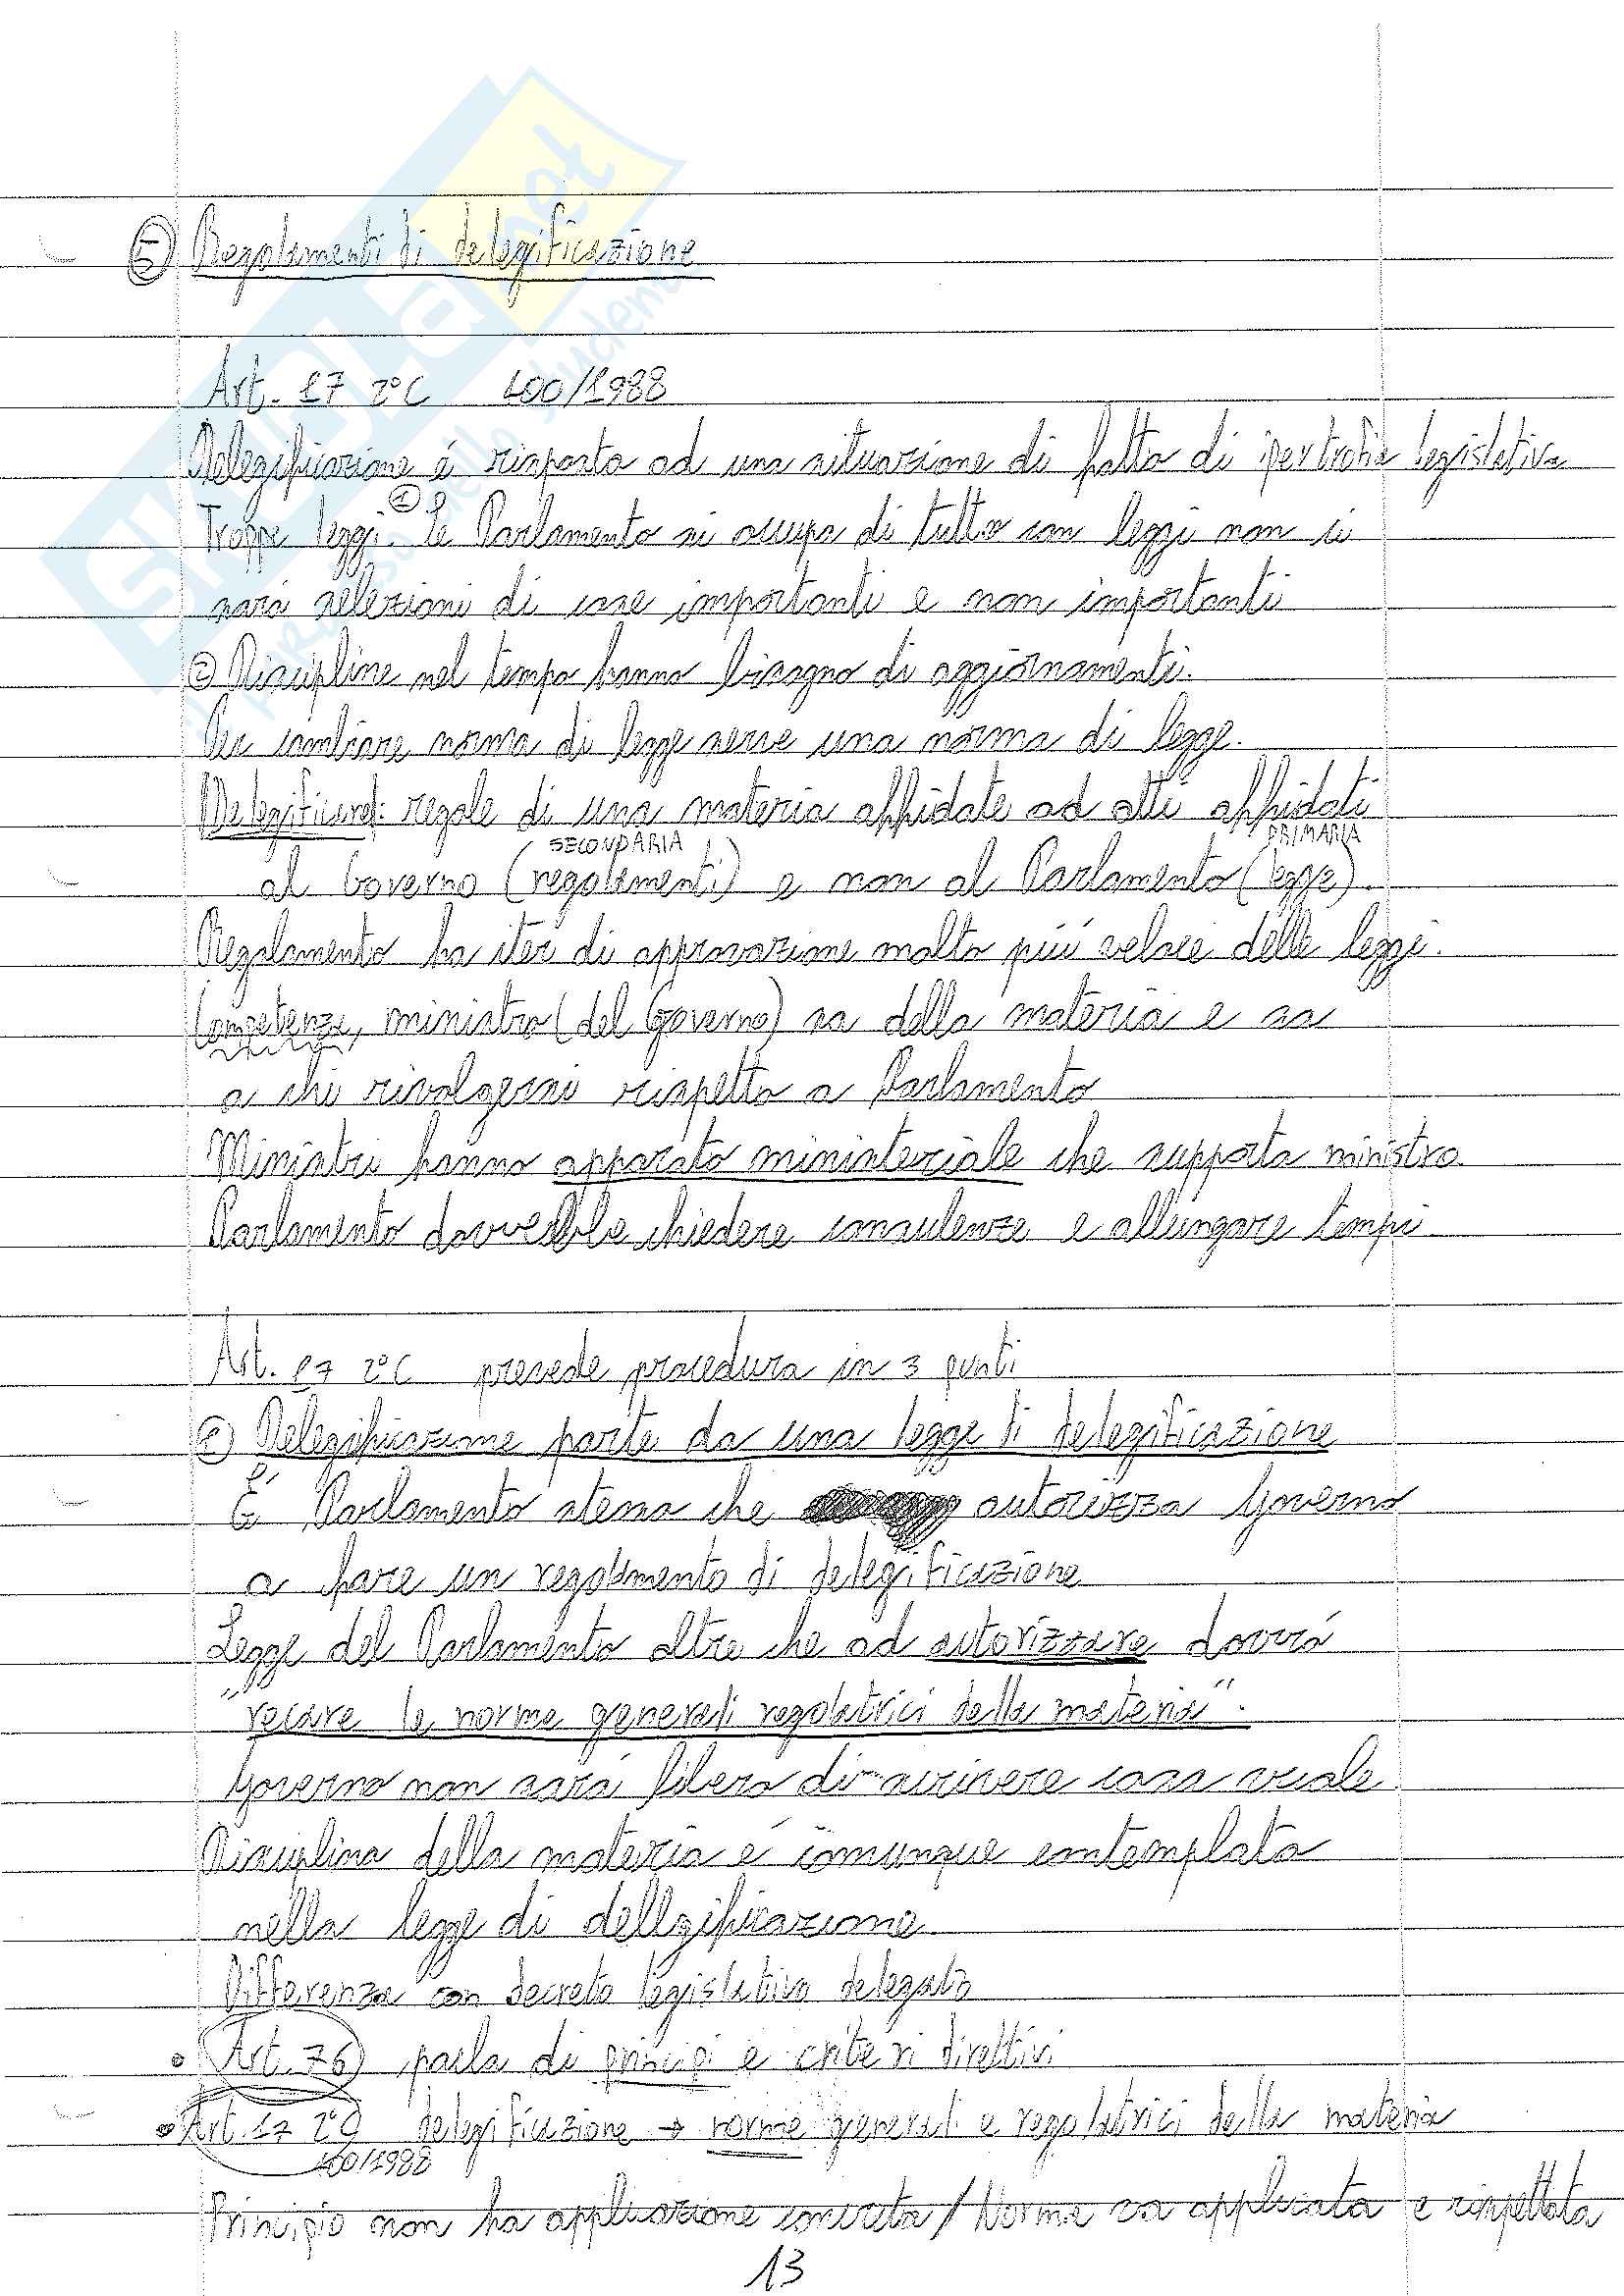 ⑤ Regolamenti di delegificazione
Art. 17 2°C 400/1988
Delegificazione é risposta ad una situazione di fatto di ipertrofia legislativa
Troppe leggi. ① Se Parlamento si occupa di tutto con leggi non ci
sará selezioni di cose importanti e non importanti
② Discipline nel tempo hanno bisogno di aggiornamenti.
Per cambiare norma di legge serve una norma di legge.
Delegificare: regole di una materia affidate ad atti affidati
SECONDARIA PRIMARIA
al Governo (regolamenti) e non al Parlamento (legge).
Regolamento ha iter di approvazione molto piú veloce delle leggi.
Competenze, ministro (del Governo) sa della materia e sa
a chi rivolgersi rispetto a Parlamento
Ministri hanno apparato ministeriale che supporta ministro
Parlamento dovrebbe chiedere consulenze e allungare tempi
Art. 17 2°C prevede procedura in 3 punti
① Delegificazione parte da una legge di delegificazione
É Parlamento stesso che autorizza Governo
a fare un regolamento di delegificazione
Legge del Parlamento oltre che ad autorizzare dovrá
"recare le norme generali regolatrici della materia".
Governo non sará libero di scrivere cosa vuole
Disciplina della materia é comunque contemplata
nella legge di dellgificazione
Differenza con decreto legislativo delegato
• Art. 76 parla di principi e criteri direttivi
• Art. 17 2°C delegificazione → norme generali e regolatrici della materia
400/1988
Principio non ha applicazione concreta / Norma va applicata e rispettata
13